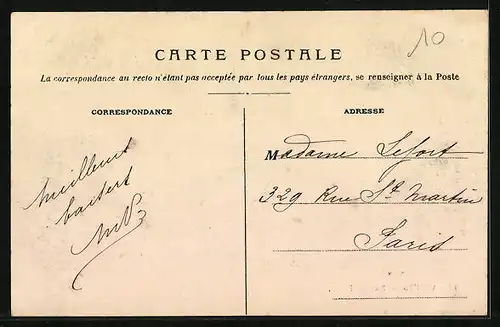 10
CARTE POSTALE
La correspondance au recto n'étant pas acceptée par tous les pays étrangers, se renseigner à la Poste
CORRESPONDANCE
ADRESSE
Madame Lefort
329 Rue St Martin
Paris
baisers